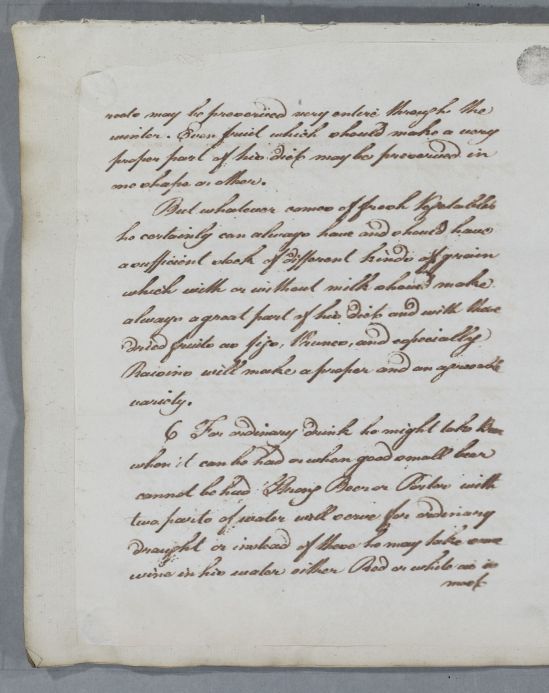 roots may be preserved very entire through the
winter. Even fruit which should make a very
proper part of his diet may be preserved in
one shape or other.
But whatever comes of fresh Vegetables
he certainly can always have and should have
a sufficient stock of different kinds of grain
which with or without milk should make
always a great part of his diet and with these
dried fruits as figs, Prunes, and especially
Raisins will make a proper and an agreeable
variety.
6 For ordinary drink he might take
when it can be had or when good small beer
cannot be had Strong Beer or Porter with
two parts of water will serve for ordinary
draught or instead of these he may take some
wine in his water either Red or white as is
most